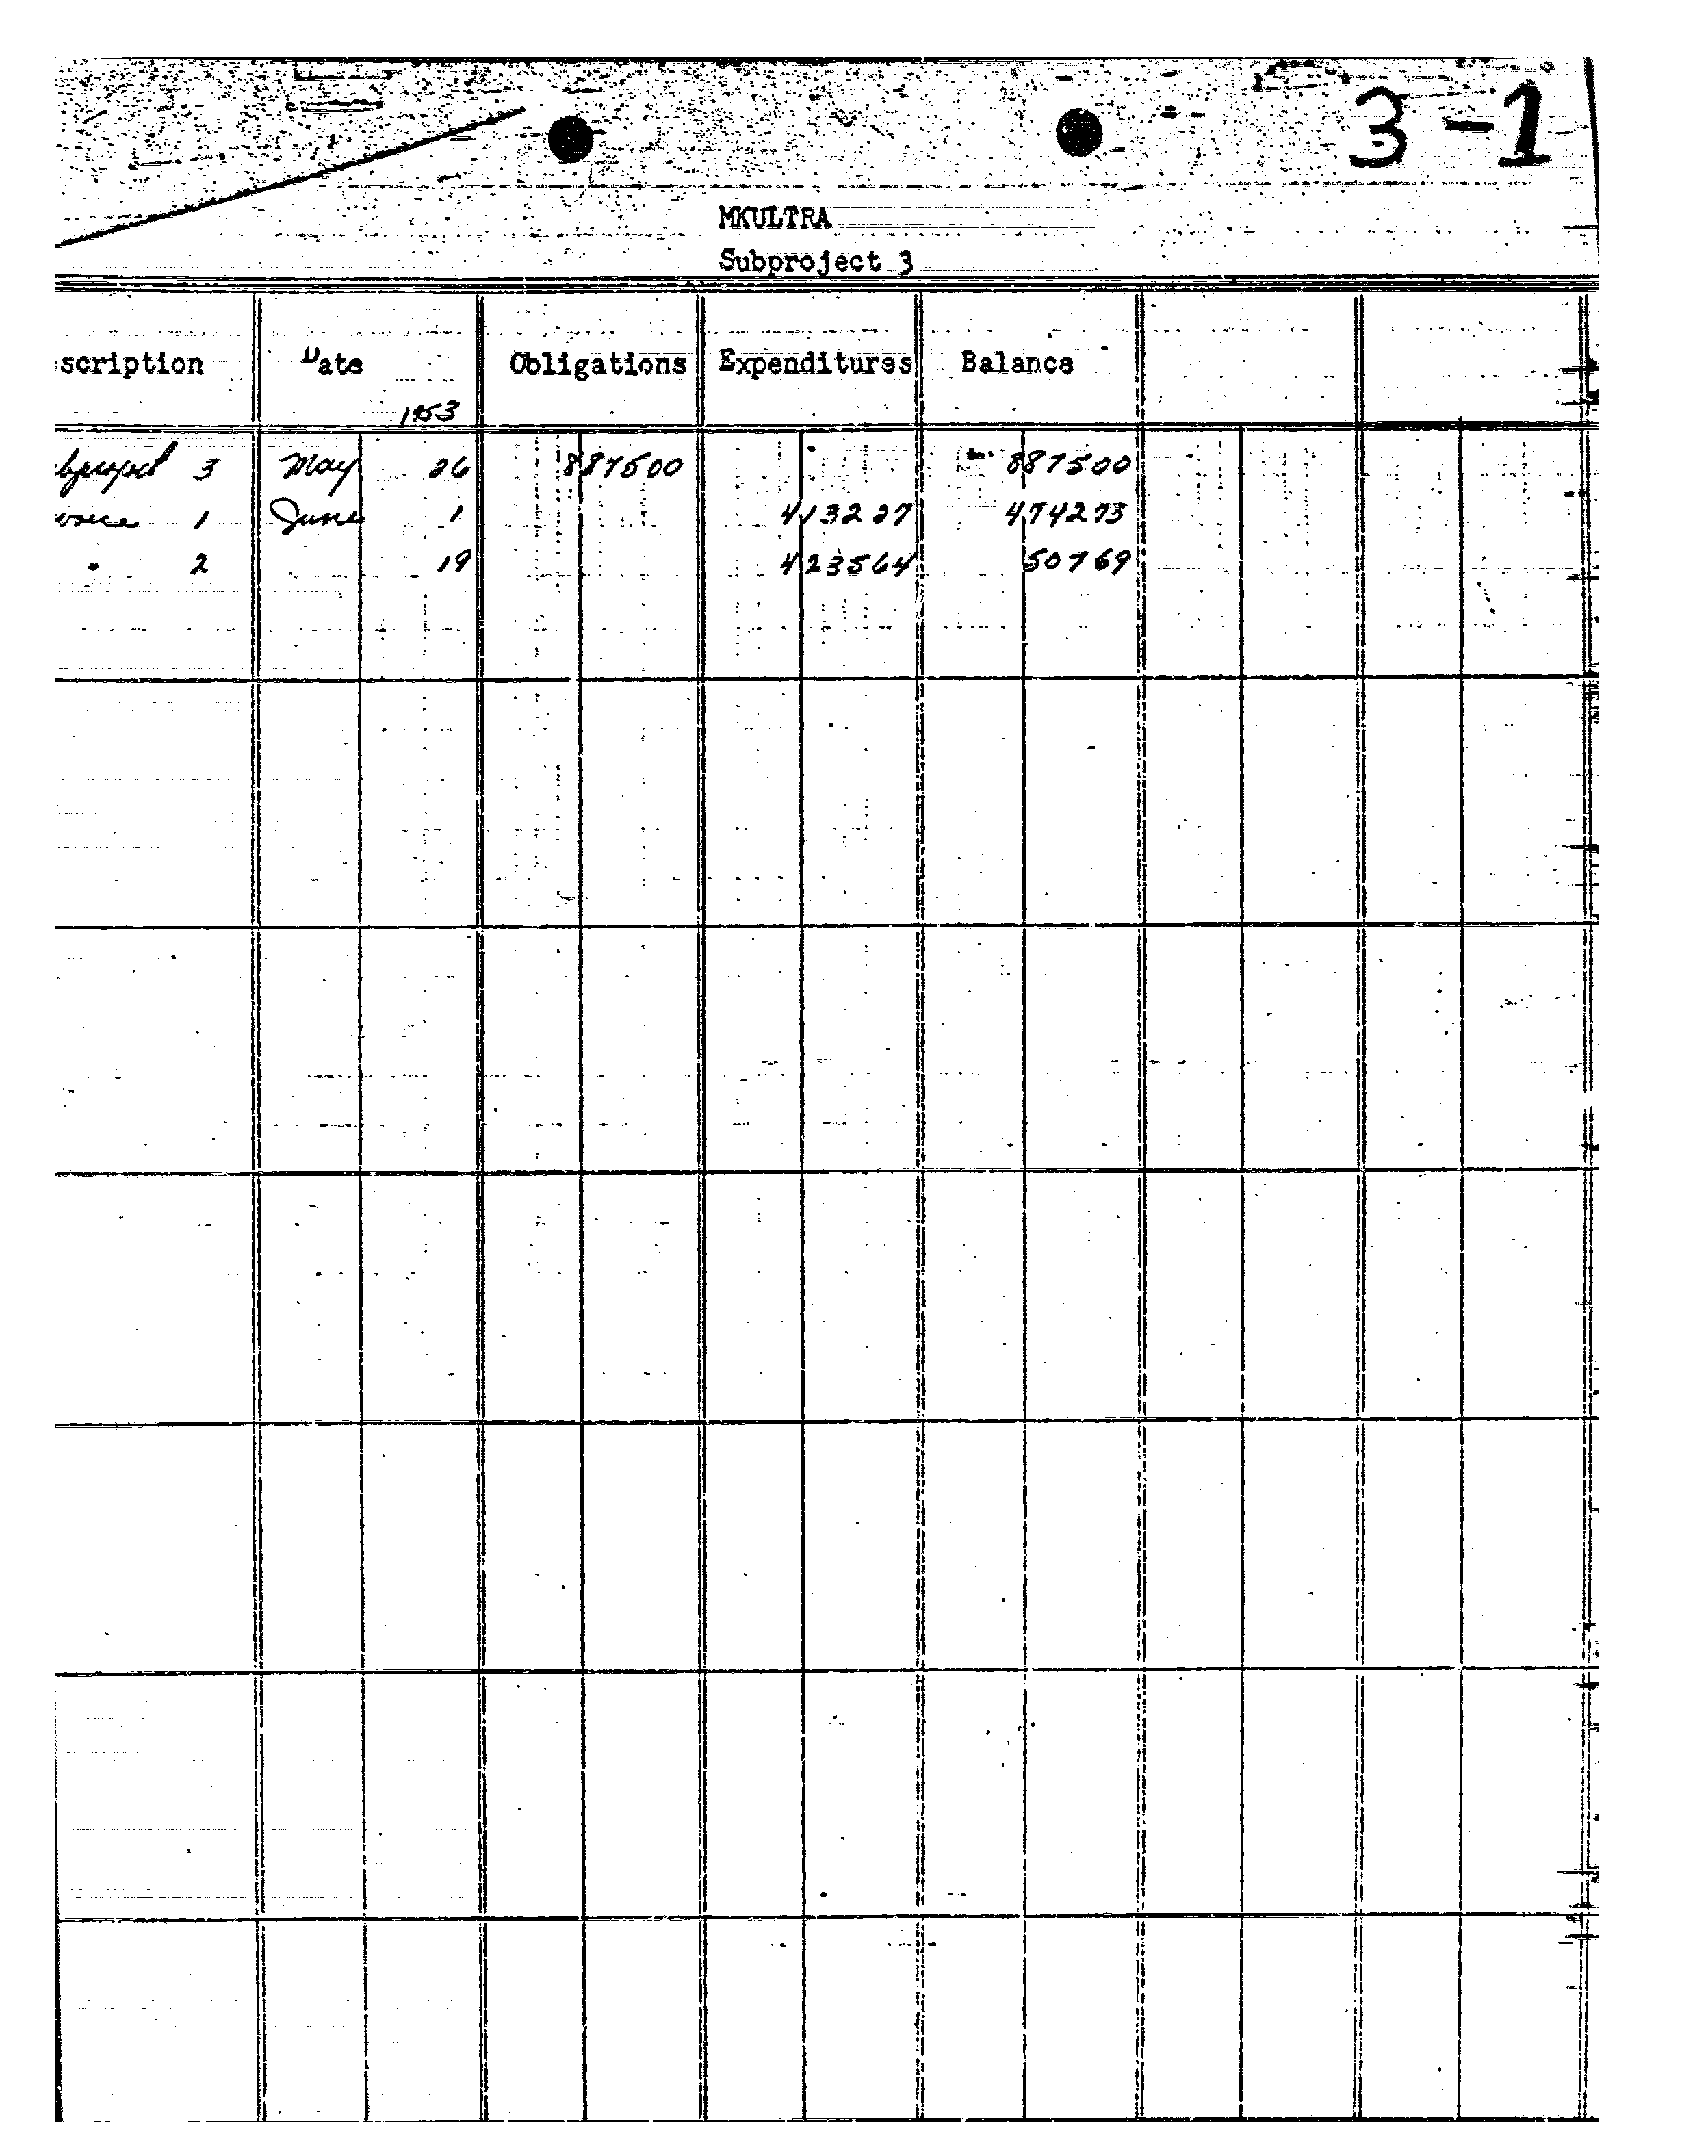 3-1
MKULTRA
Subproject 3
scription Date Obligations Expenditures Balance
1953
bproject 3 May 26 887500 887500
voice 1 June 1 413227 474273
" 2 19 423564 50769